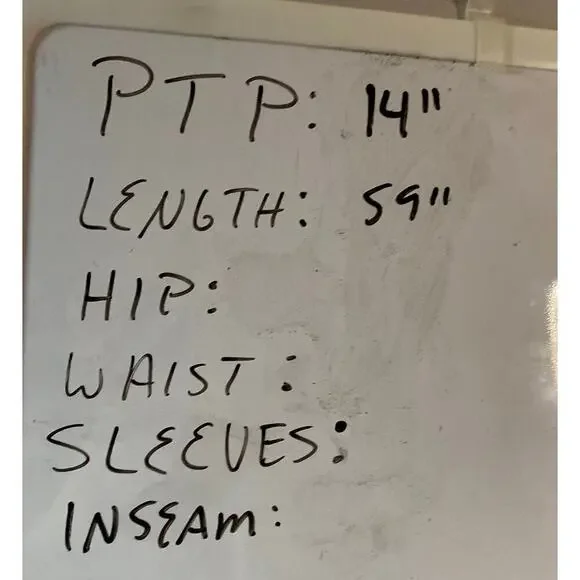 PTP: 14"
LENGTH: 59"
HIP:
WAIST:
SLEEVES:
INSEAM: